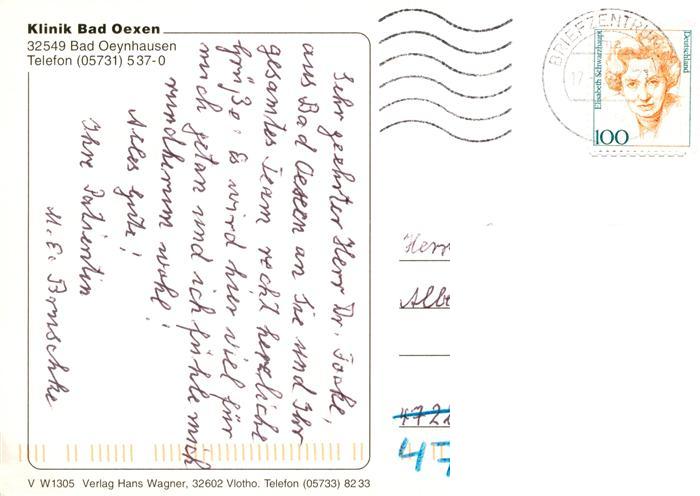 Klinik Bad Oexen
32549 Bad Oeynhausen
Telefon (05731) 537-0
Sehr geehrter Herr Dr.
aus Bad Oexen an Sie und Ihr
gesamtes Team recht herzliche
Grüße. Es wird hier viel für
mich getan und ich fühle mich
rundherum wohl!
Alles Gute!
Ihre Patientin
M. E.
V W1305 Verlag Hans Wagner, 32602 Vlotho. Telefon (05733) 8233
BRIEFZENTRUM
17
Elisabeth Schwarzhaupt
Deutschland
100
Herr
Albe
472
47